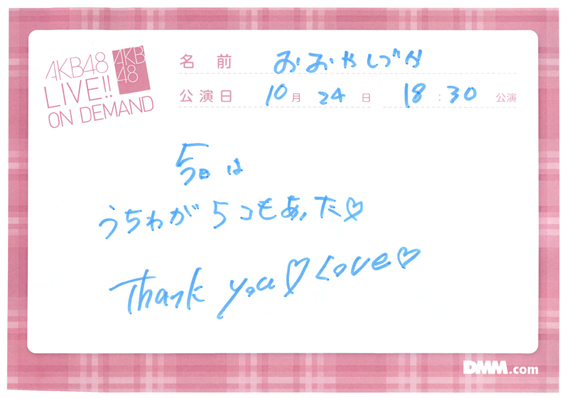 AKB48
LIVE!!
ON DEMAND
AKB
48
名前 おおやしづか
公演日 10月 24日 18:30 公演
今日は
うちわが 5つもあった♡
Thank you♡ Love♡
DMM.com